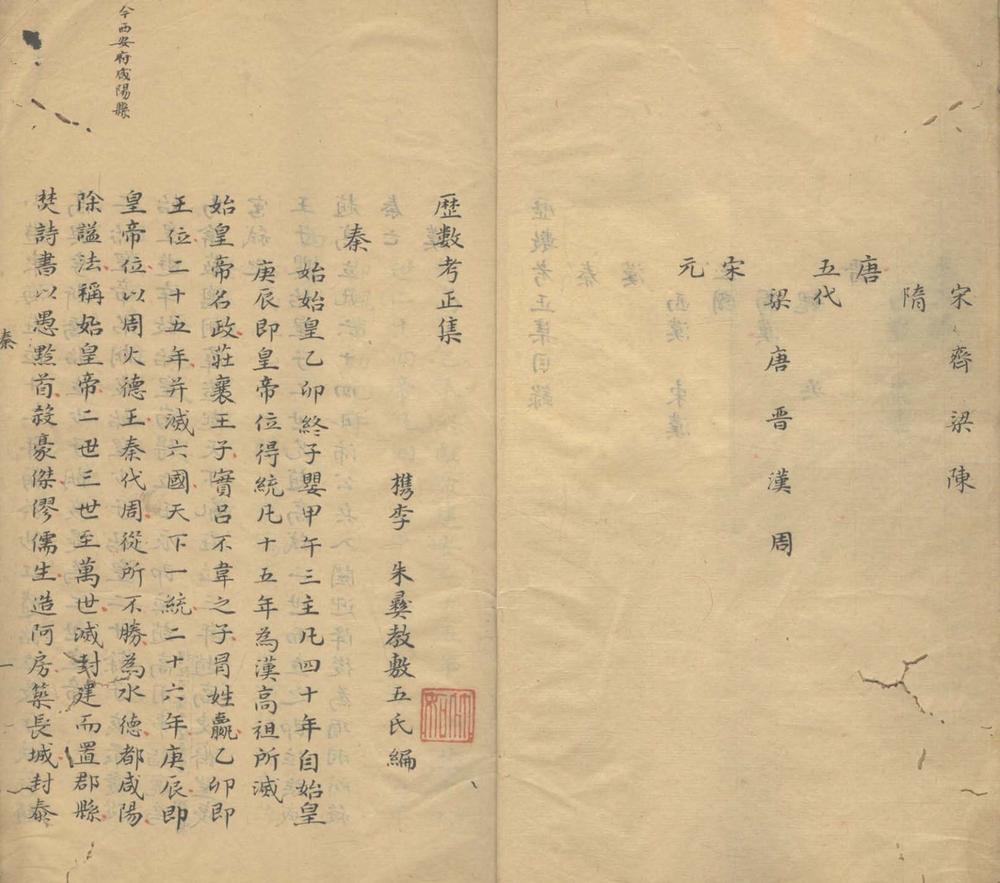 宋 齊 梁 陳
隋
唐
五代
梁 唐 晋 漢 周
宋
元
歷數考正集
檇李 朱彝教敷五氏編
秦
始始皇乙卯終子嬰甲午三主凡四十年自始皇
庚辰即皇帝位得統凡十五年為漢高祖所滅
始皇帝名政莊襄王子實呂不韋之子冒姓嬴乙卯即
王位二十五年并滅六國天下一統二十六年庚辰即
皇帝位以周火德王秦代周從所不勝為水德都咸陽
除謚法稱始皇帝二世三世至萬世滅封建而置郡縣
焚詩書以愚黔首殺豪傑僇儒生造阿房築長城封泰
今西安府咸陽縣
秦